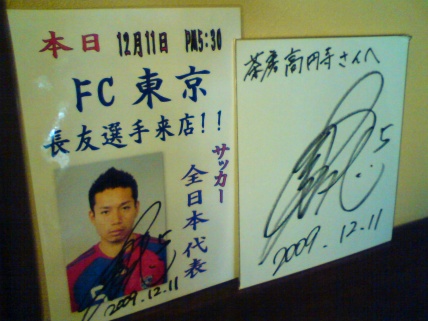 本日 12月11日 PM5:30
FC東京
長友選手来店!!
サッカー
全日本代表
5
2009.12.11
高円寺さんへ
5
2009.12.11